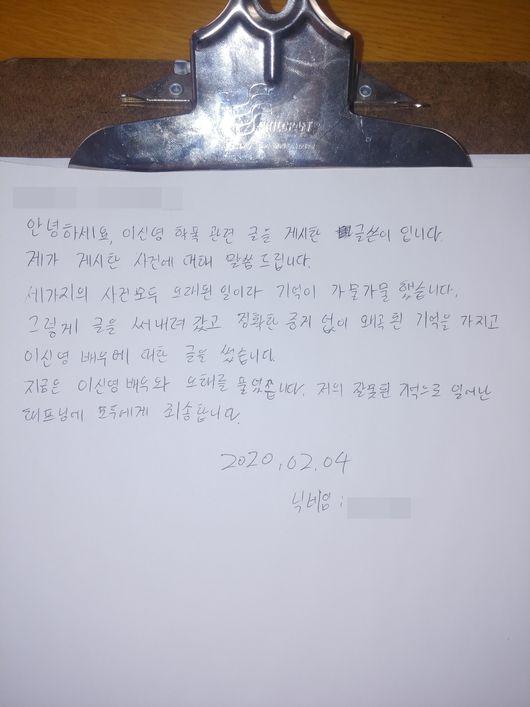 SKILCRAFT
안녕하세요, 이신영 학폭 관련 글을 게시한 글쓴이 입니다.
제가 게시한 사건에 대해 말씀드립니다.
세가지의 사건 모두 오래된 일이라 기억이 가물가물 했습니다.
그렇게 글을 써내려 갔고 정확한 증거 없이 왜곡된 기억을 가지고
이신영 배우에 대한 글을 썼습니다.
지금은 이신영 배우와 오해를 풀었습니다. 저의 잘못된 기억으로 일어난
해프닝에 모두에게 죄송합니다.
2020.02.04
닉네임 :